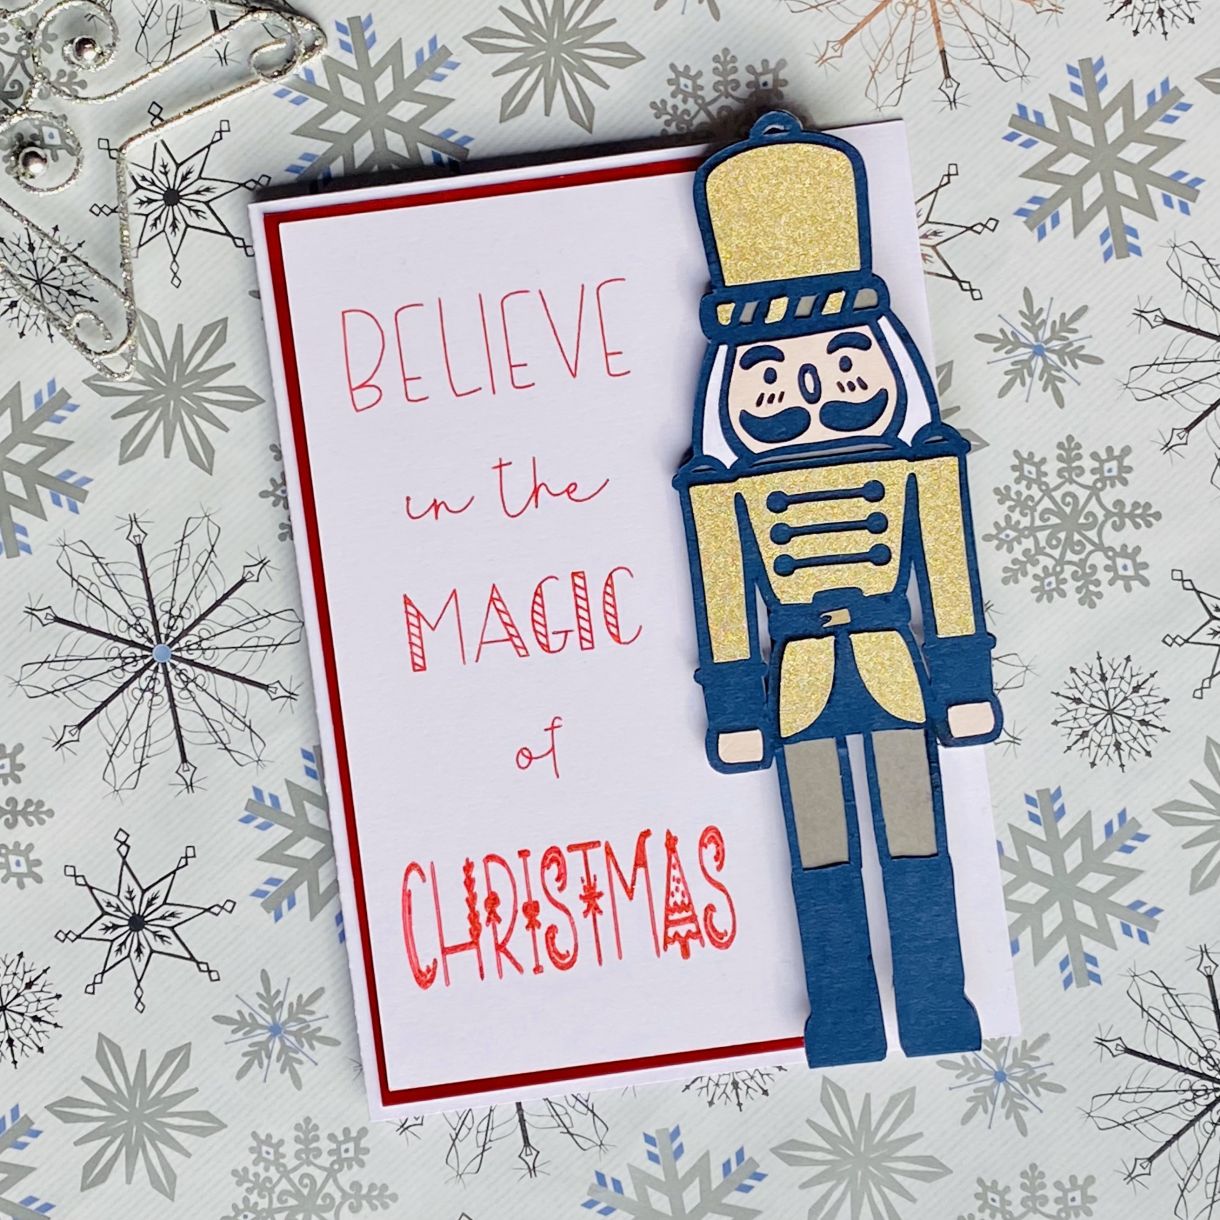 BELIEVE
in the
MAGIC
of
CHRISTMAS